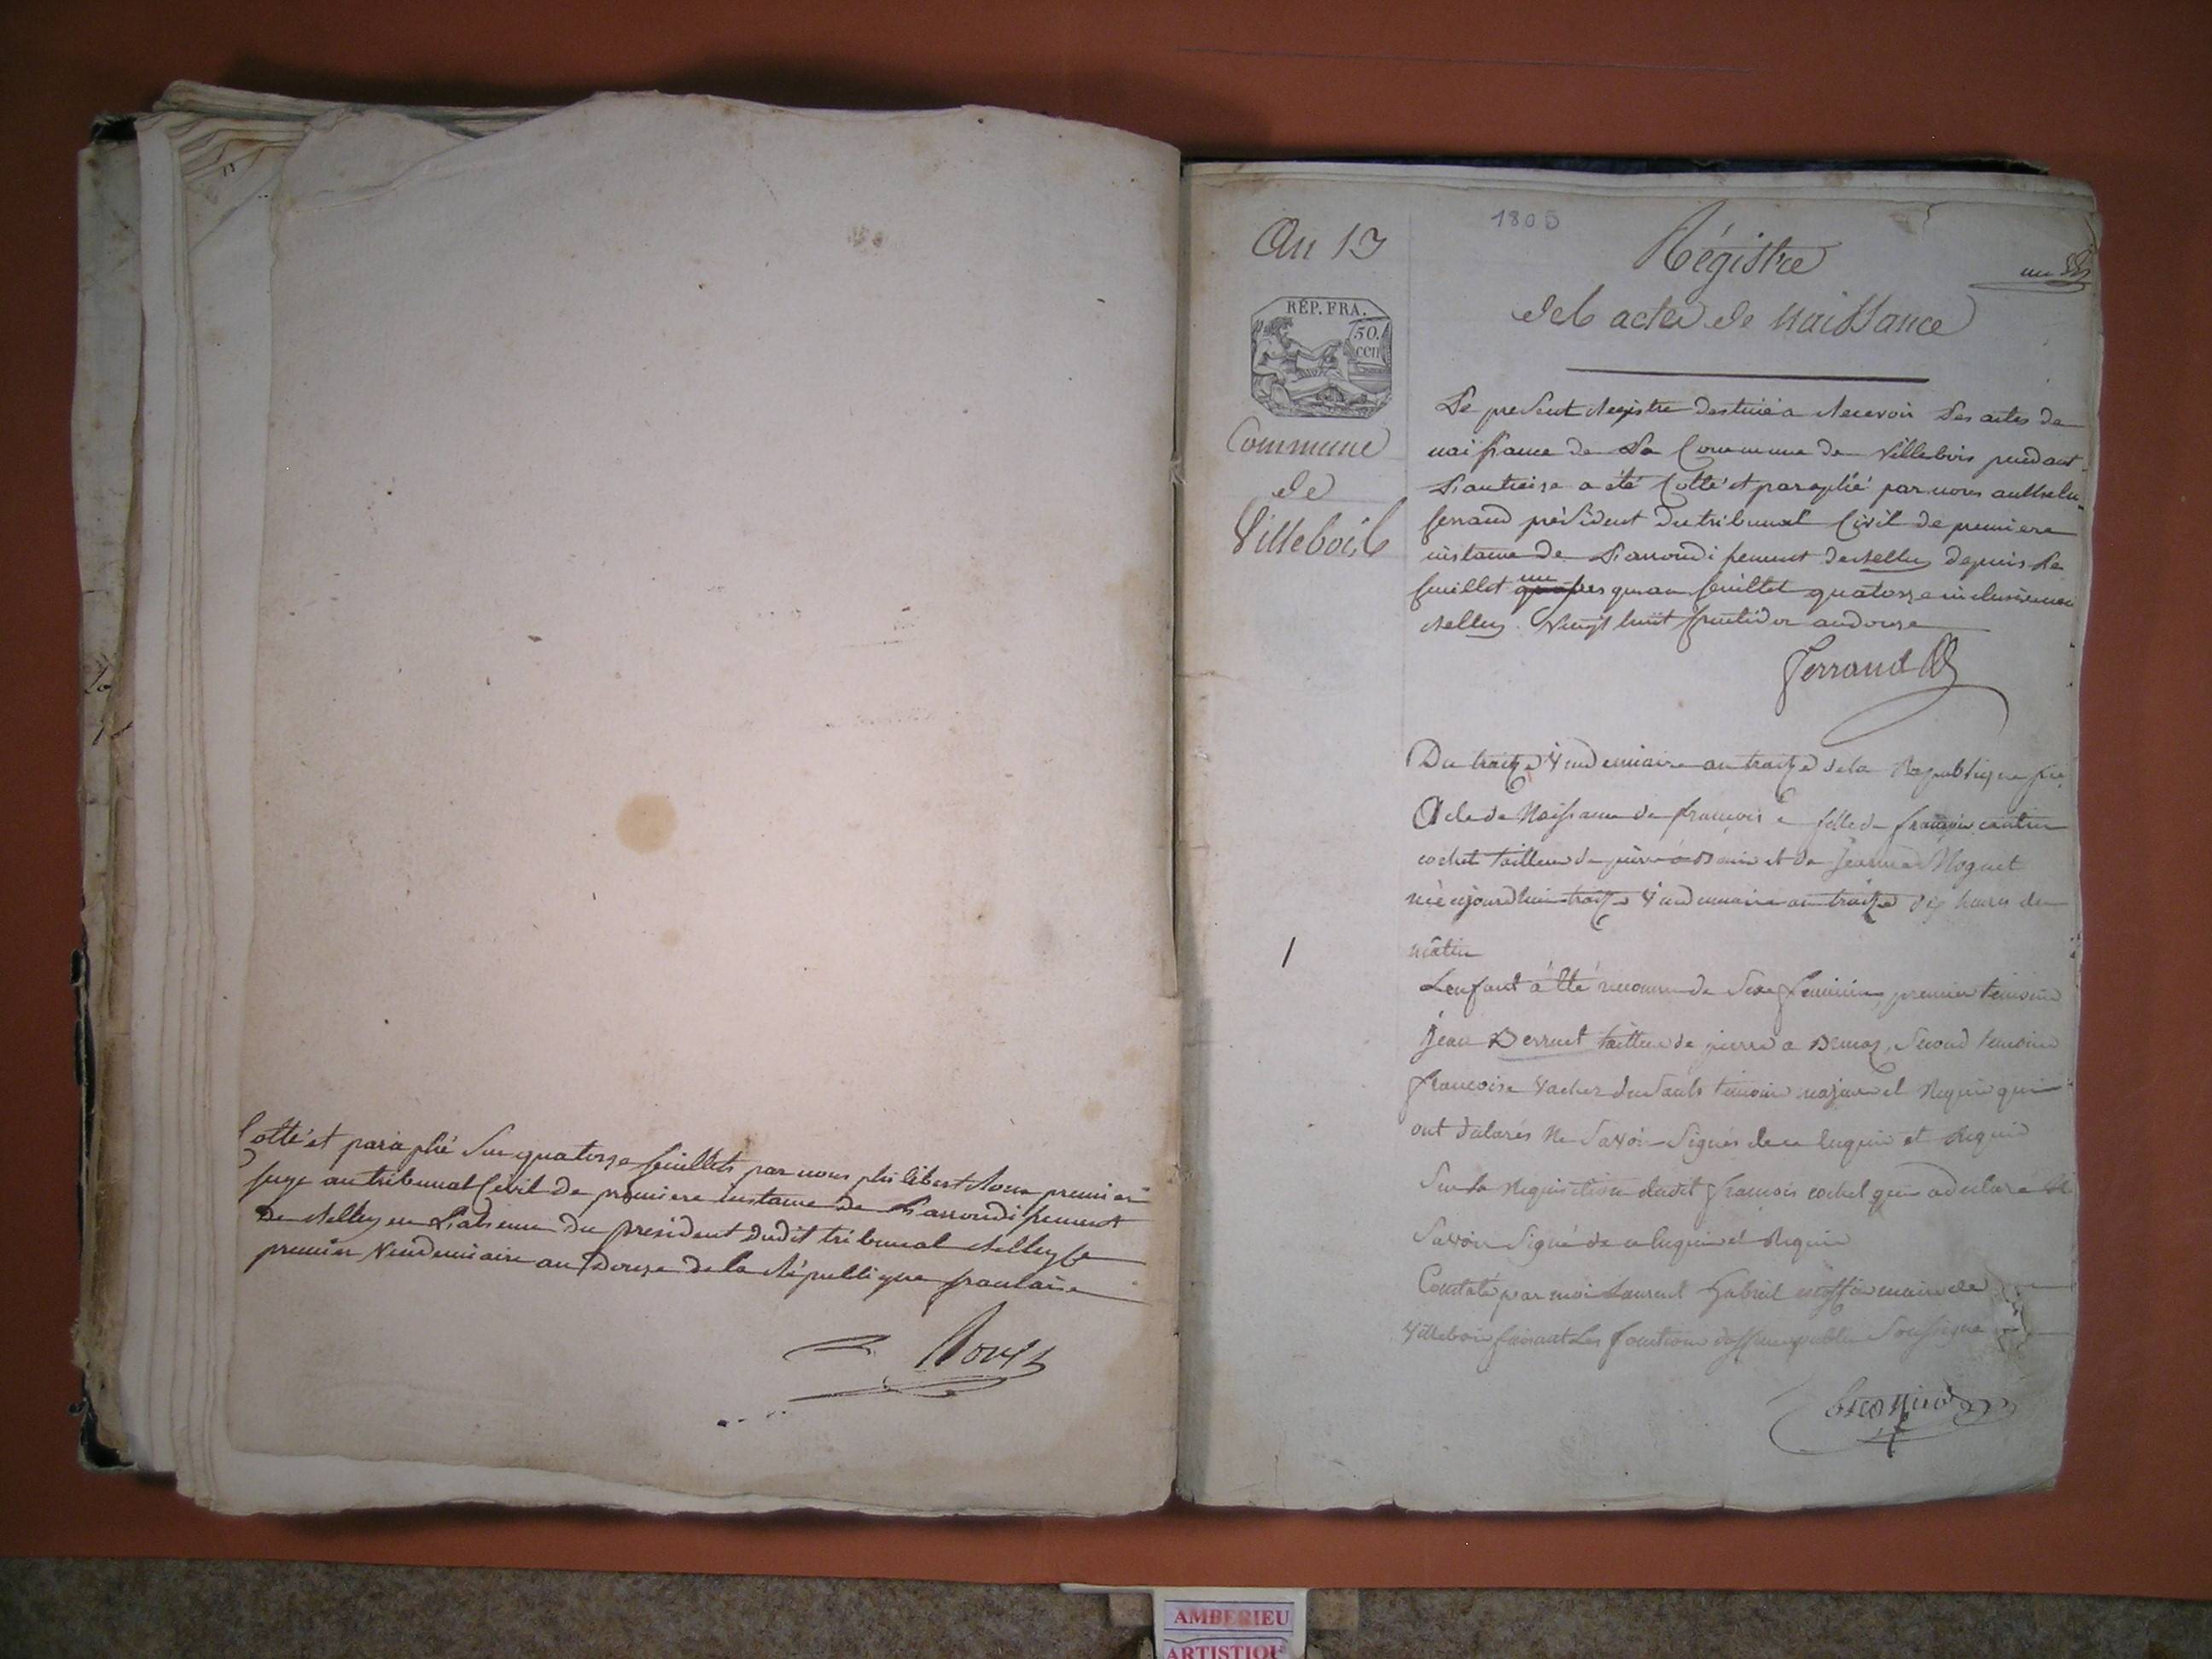 Cotté et paraphé Sur quatorze feuillets par nous philibert Roux premier
juge au tribunal Civil de premiere instance de L'arrondissement
De Belley en L'absence Du president dudit tribunal Belley le
premier Vendemiaire an Douze de la République francaise
An 13
1805
Régistre
des actes de naissance
RÉP. FRA.
50.
cen
Commune
de
Villebois
Le present Registre destiné a Recevoir Les actes de
naissance de La Commune de Villebois pendant
L'an treise a été Cotté et paraphé par nous anthelme
ferrand président du tribunal Civil de premiere
instance de L'arrondissement de Belley depuis Le
feuillet un jusques au feuillet quatorze inclusivement
Belley Vingt huit fructidor an douze
Ferrand
Du traize Vendemiaire an traize de la Republique
Acte de Naissance de francoise fille de francois
cochet tailleur de pierre a et de Jeanne
née aujourdhui traize Vendemiaire an traize dix heures du
mâtin
Lenfant à été reconnu de Sexe feminin, premier temoin
Jean Berruet tailleur de pierre a Benoz, Second temoin
francoise Vacher temoin majeur et Requis qui
ont déclarés Ne Savoir Signés de ce Enquis et Requis
1
Sur la Requisition dudit francois cochet qui a déclaré
Savoir Signé de ce Enquis et Requis
Constaté par moi Laurent Gabriel maire de
Villebois faisant Les fonctions public Soussigné
AMBERIEU
ARTISTIQUE